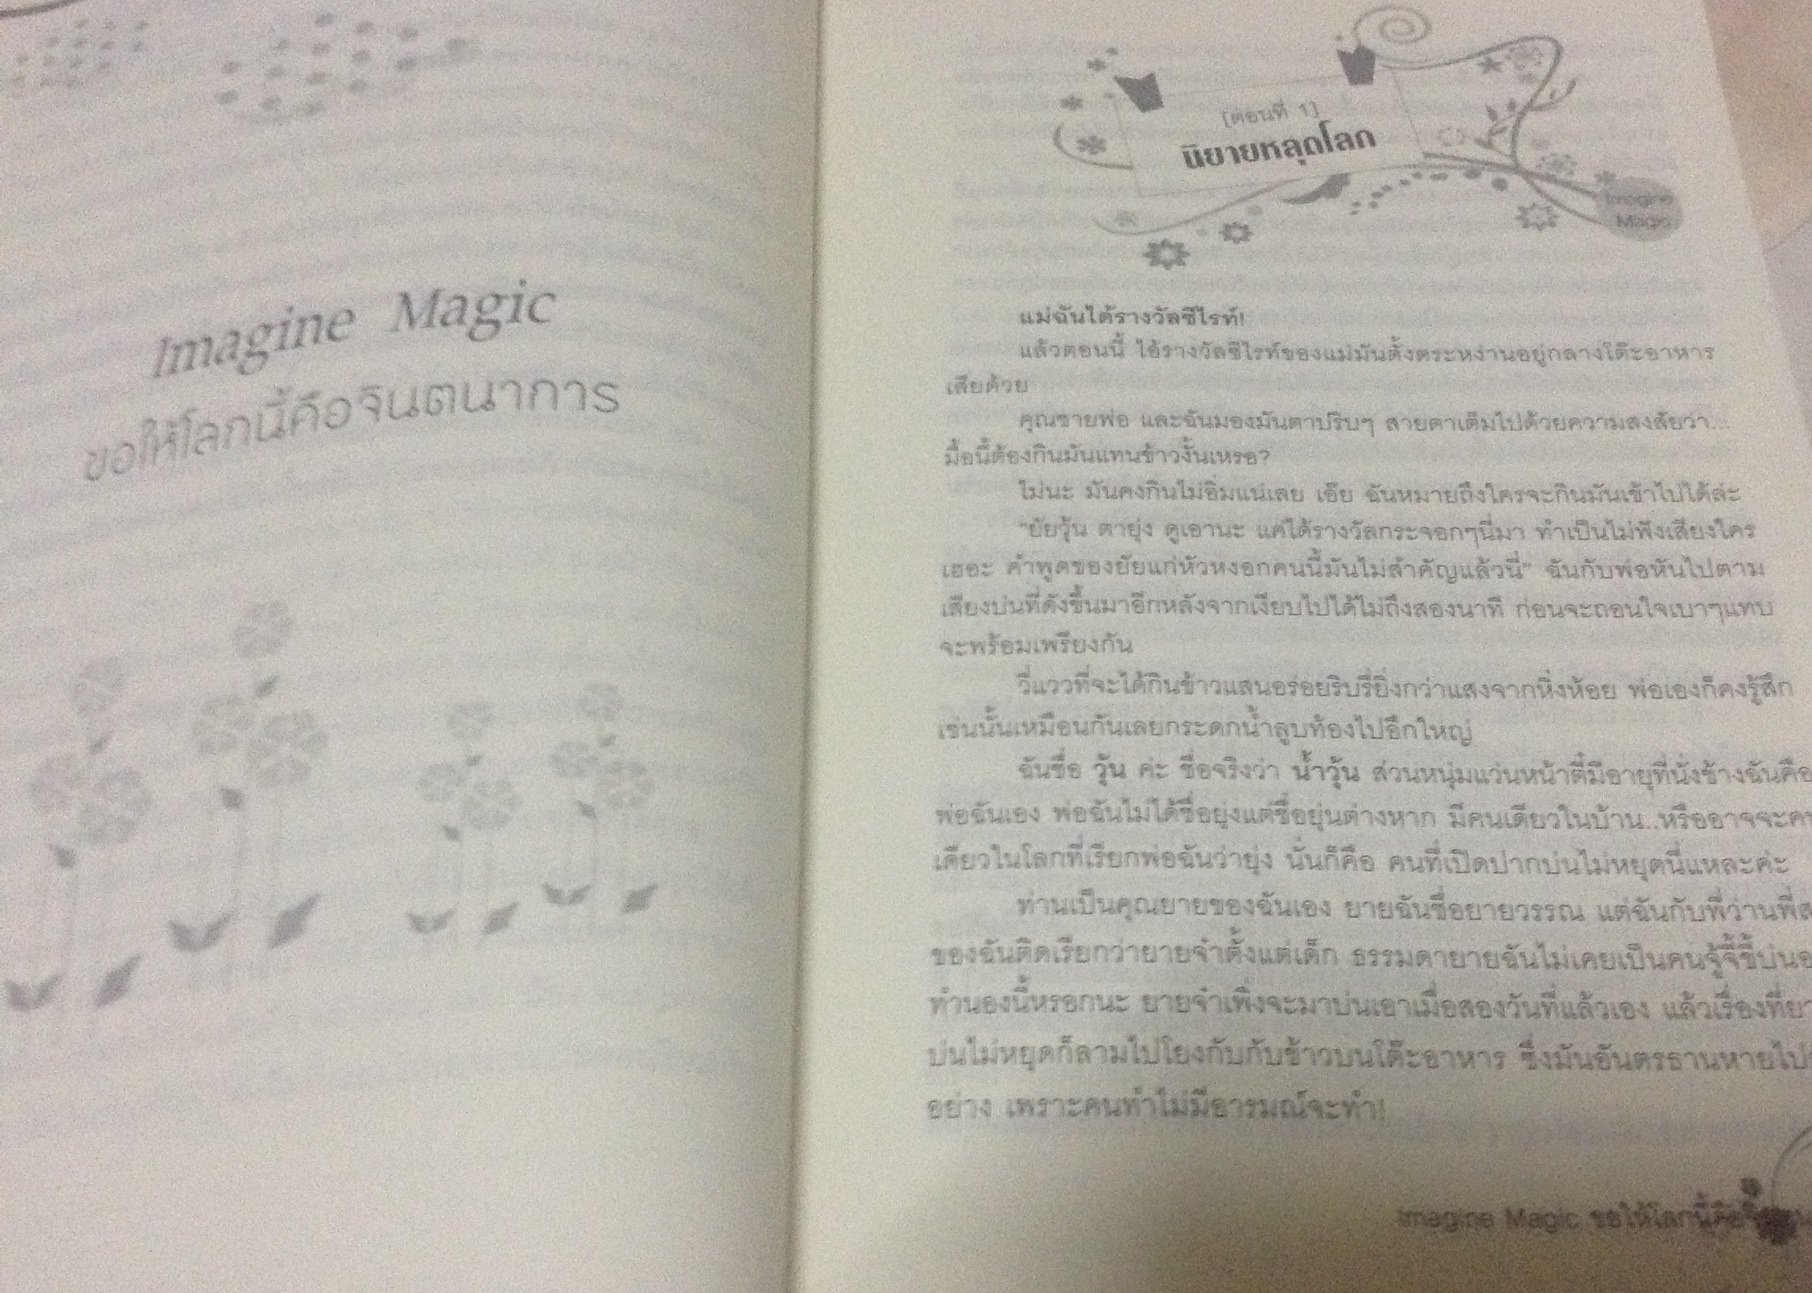 Imagine Magic
ขอให้โลกนี้คือจินตนาการ
[ตอนที่ 1]
นิยายหลุดโลก
Imagine
Magic
แม่ฉันได้รางวัลซีไรท์!
แล้วตอนนี้ ไอ้รางวัลซีไรท์ของแม่มันตั้งตระหง่านอยู่กลางโต๊ะอาหาร
เสียด้วย
คุณชายพ่อ และฉันมองมันตาปริบๆ สายตาเต็มไปด้วยความสงสัยว่า...
มื้อนี้ต้องกินมันแทนข้าวงั้นเหรอ?
ไม่นะ มันคงกินไม่อิ่มแน่เลย เอ๊ย ฉันหมายถึงใครจะกินมันเข้าไปได้ล่ะ
"ยัยวุ้น ตายุ่ง ดูเอานะ แค่ได้รางวัลกระจอกๆนี่มา ทำเป็นไม่ฟังเสียงใคร
เฮอะ คำพูดของยัยแก่หัวหงอกคนนี้มันไม่สำคัญแล้วนี่" ฉันกับพ่อหันไปตาม
เสียงบ่นที่ดังขึ้นมาอีกหลังจากเงียบไปได้ไม่ถึงสองนาที ก่อนจะถอนใจเบาๆแทบ
จะพร้อมเพรียงกัน
วี่แววที่จะได้กินข้าวแสนอร่อยริบรี่ยิ่งกว่าแสงจากหิ่งห้อย พ่อเองก็คงรู้สึก
เช่นนั้นเหมือนกันเลยกระดกน้ำลูบท้องไปอึกใหญ่
ฉันชื่อ วุ้น ค่ะ ชื่อจริงว่า น้ำวุ้น ส่วนหนุ่มแว่นหน้าตี๋มีอายุที่นั่งข้างฉันคือ
พ่อฉันเอง พ่อฉันไม่ได้ชื่อยุ่งแต่ชื่อยุ่นต่างหาก มีคนเดียวในบ้าน..หรืออาจจะ
เดียวในโลกที่เรียกพ่อฉันว่ายุ่ง นั่นก็คือ คนที่เปิดปากบ่นไม่หยุดนี่แหละค่ะ
ท่านเป็นคุณยายของฉันเอง ยายฉันชื่อยายวรรณ แต่ฉันกับพี่ว่าน
ของฉันติดเรียกว่ายายจ๋าตั้งแต่เด็ก ธรรมดายายฉันไม่เคยเป็นคนจู้จี้ขี้บ่น
ทำนองนี้หรอกนะ ยายจ๋าเพิ่งจะมาบ่นเอาเมื่อสองวันที่แล้วเอง แล้วเรื่องที่
บ่นไม่หยุดก็ลามไปโยงกับกับข้าวบนโต๊ะอาหาร ซึ่งมันอันตรธานหายไป
อย่าง เพราะคนทำไม่มีอารมณ์จะทำ!
Imagine Magic ขอให้โลกนี้คือ